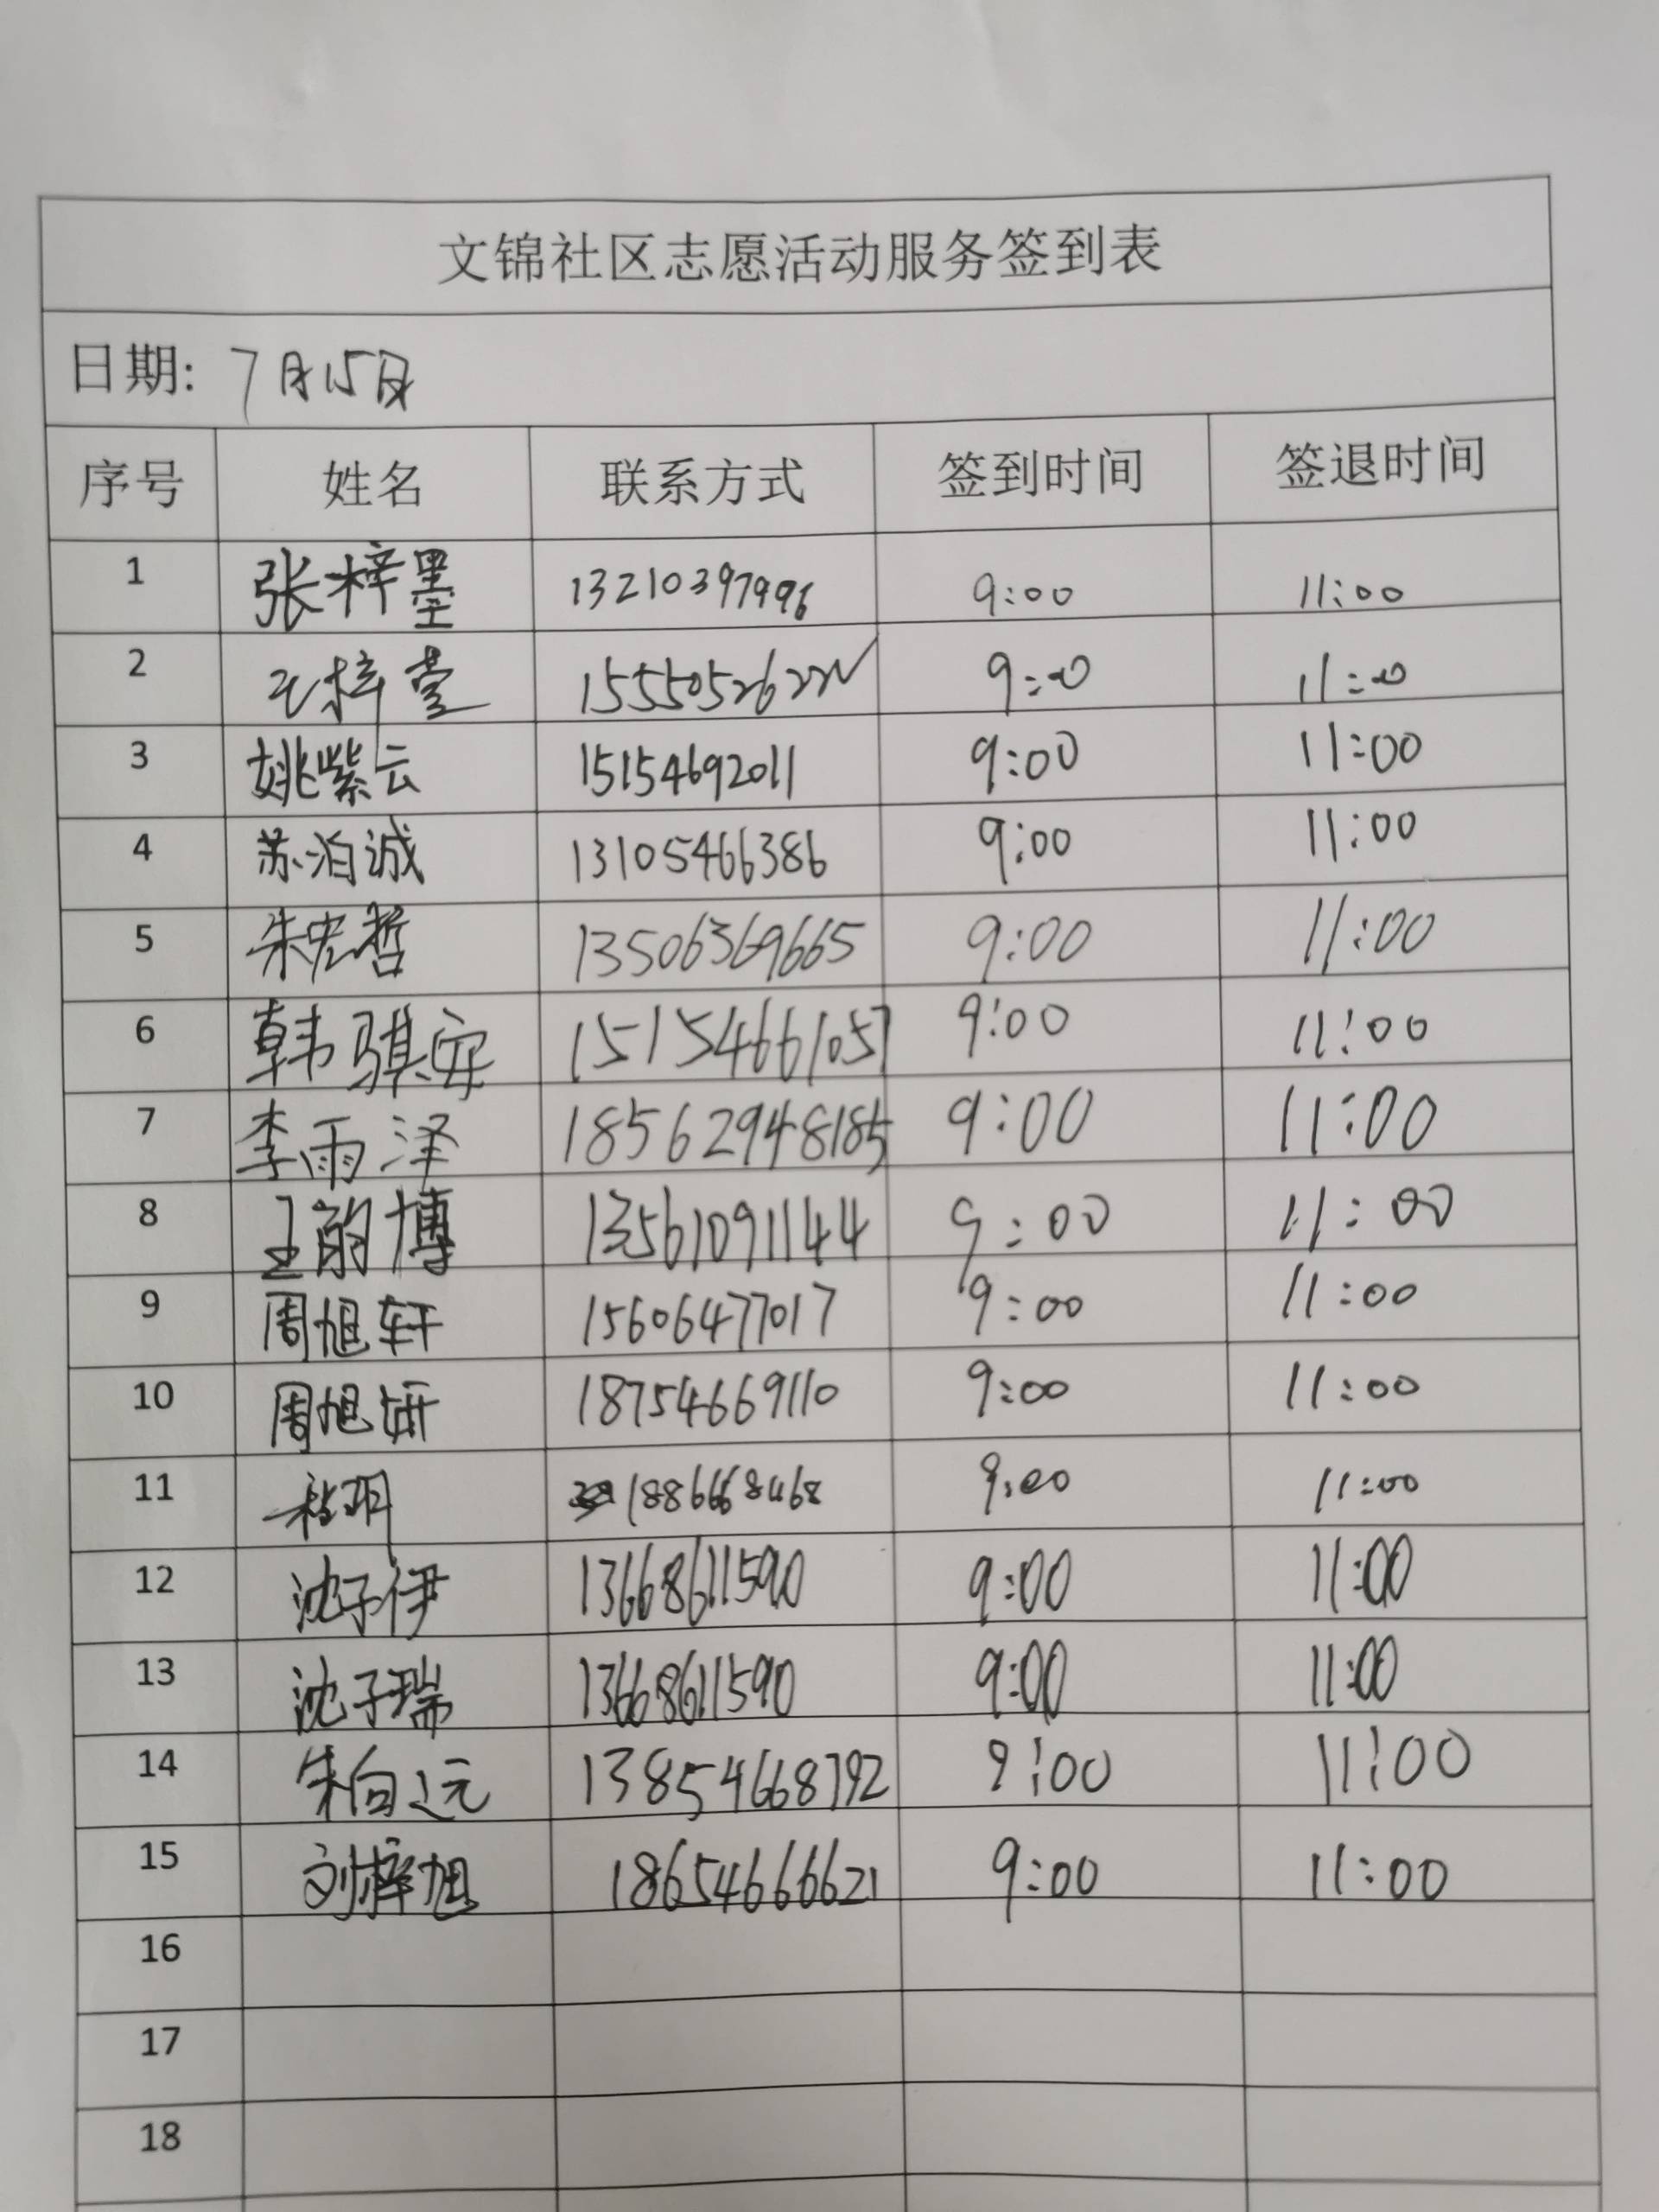 文锦社区志愿活动服务签到表
日期: 7月15日
序号 姓名 联系方式 签到时间 签退时间
1 张梓墨 13210397996 9:00 11:00
2 9:00 11:00
3 姚紫云 15154692011 9:00 11:00
4 苏泊诚 13105466386 9:00 11:00
5 朱宏哲 13506369665 9:00 11:00
6 韩骐安 15154661057 9:00 11:00
7 李雨泽 18562948185 9:00 11:00
8 13561091144 9:00 11:00
9 周旭轩 15606477017 9:00 11:00
10 周旭妍 18754669110 9:00 11:00
11 9:00 11:00
12 沈子伊 13668611590 9:00 11:00
13 沈子瑞 13668611590 9:00 11:00
14 朱向远 13854668792 9:00 11:00
15 刘梓旭 18654666621 9:00 11:00
16
17
18